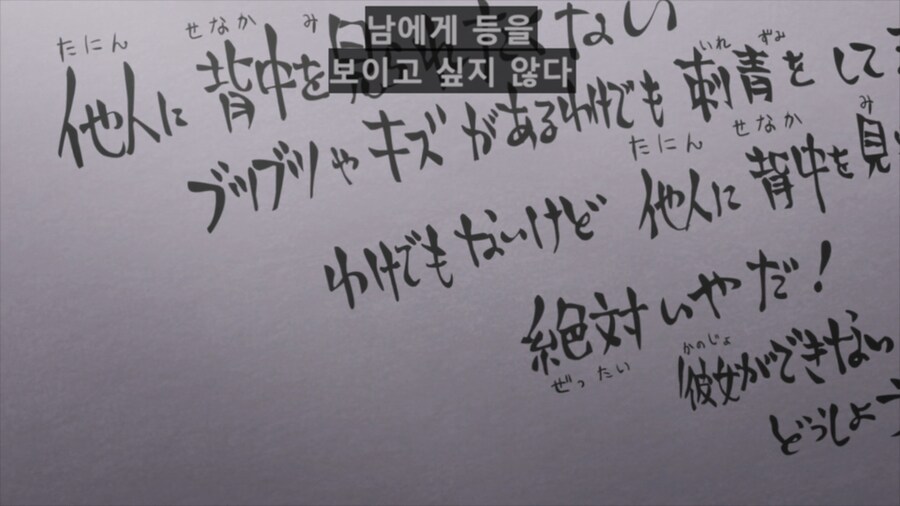 남에게 등을
보이고 싶지 않다
たにん せなか み
他人に 背中を見 ない
いれ ずみ
ブツブツや キズ があるわけでも 刺青を して
たにん せなか み
わけでも ないけど 他人に 背中を 見
絶対 いやだ!
ぜったい
かのじょ
彼女ができない
どうしよう